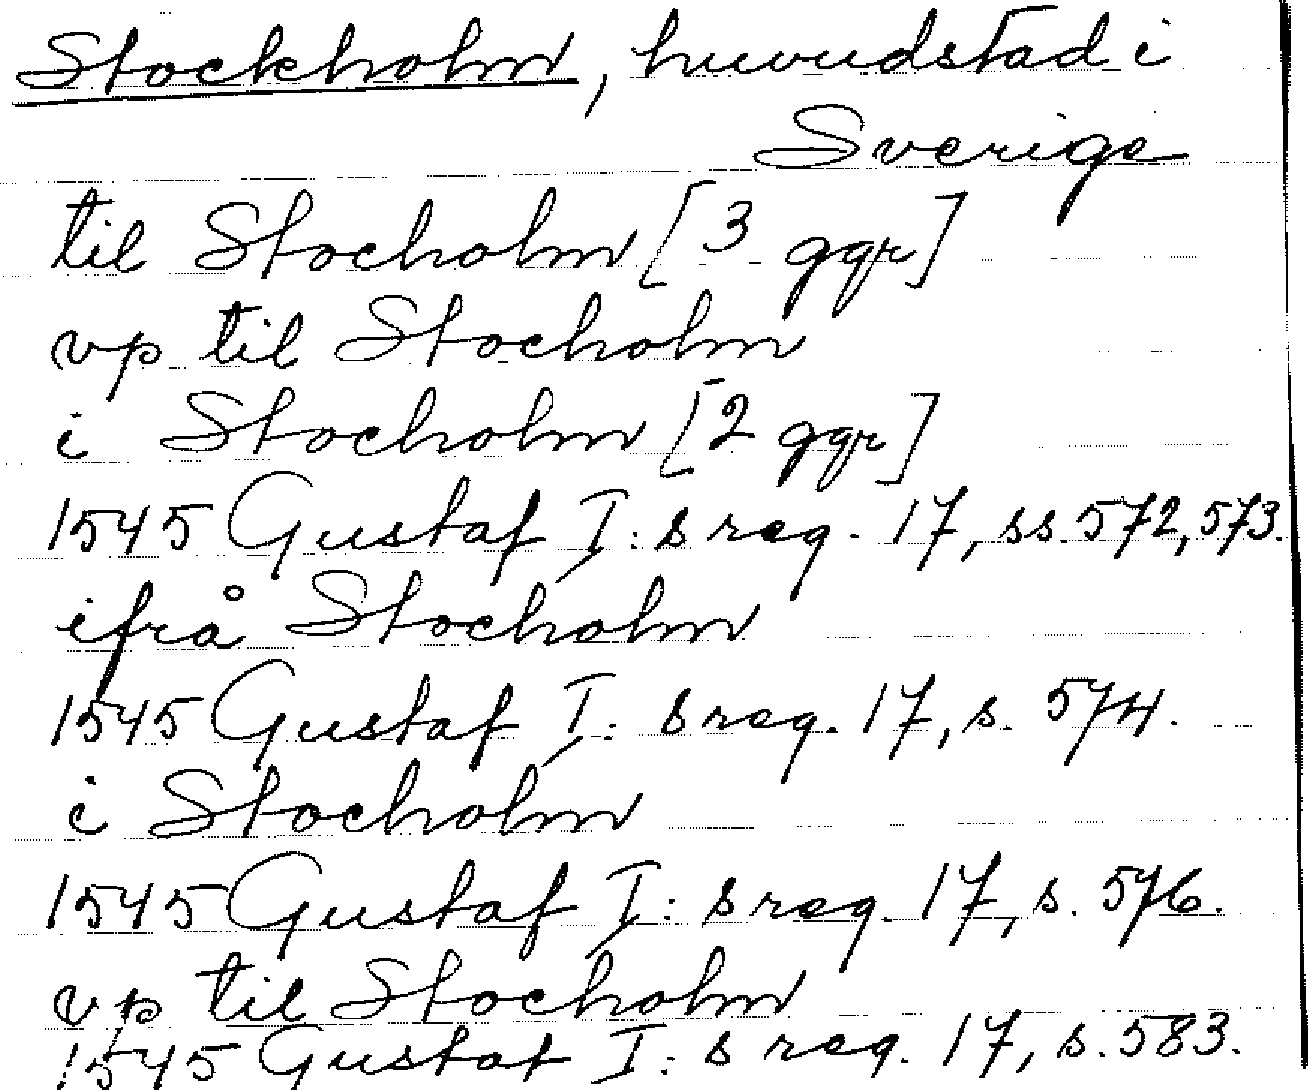 Stockholm, huvudstad i
Sverige
til Stocholm [3 ggr]
vp til Stocholm
i Stocholm [2 ggr]
1545 Gustaf I:s reg. 17, ss. 572, 573.
ifrå Stocholm
1545 Gustaf I:s reg. 17, s. 574.
i Stocholm
1545 Gustaf I:s reg. 17, s. 576.
vp til Stocholm
1545 Gustaf I:s reg. 17, s. 583.